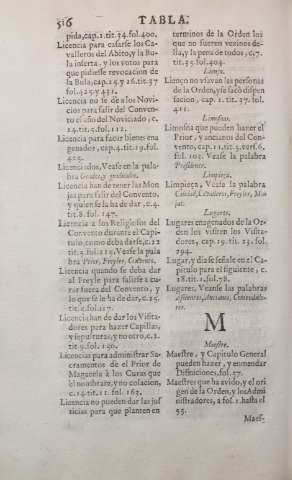 516
TABLA.
pida, cap. 1. tit. 34. fol. 400.
Licencia para casarse los Ca-
valleros del Abito, y la Bu-
la inserta, y los votos para
que pidiesse revocacion de
la Bula, cap. 25. y 26. tit. 37
fol. 425. y 431.
Licencia no se dè a los Novi-
cios para salir del Conven-
to el año del Noviciado, c.
14. tit. 5. fol. 112.
Licencia para hacer bienes ena
genados, cap. 4. tit. 19. fol.
Licenciados, Vease en la pala-
bra Grados, y graduados.
Licencia han de tener las Mon
jas para salir del Convento,
y quien se la ha de dar, c. 4.
tit. 8. fol. 147.
Licencia a los Religiosos del
Convento durante el Capi-
tulo, como deba darse, c. 12
Vease la pala
bra Prior, Freyles,
Licencia quando se deba dar
al Freyle para salirse a cu-
rar fuera del Convento, y
lo que se le ha de dar, c. 15.
tit. c. fol. 117.
Licencia han de dar los Visita-
dores para hazer Capillas,
y sepulturas, y no otro, c. 2.
tit. 9. fol. 150.
Licencias para administrar Sa-
cramentos de el Prior de
Magacela à los Curas que
el nombrare, y no colacion,
c. 14. tit. 11. fol. 167.
Licencia no pueden dar las jus
ticias para que planten en
terminos de la Orden los
que no fueren vezinos de-
lla, y la pena de todos, c. 7.
tit. 35. fol. 404.
Lienço.
Lienço no vistan las personas
de la Orden, y se sacò dispen
sacion, cap. 1. tit. 37. fol.
411.
Limosnas.
Limosna que pueden hazer el
Prior, y ancianos del Con-
vento, cap. 11. tit. 5. vers. 6.
fol. 105. Vease la palabra
Presidente.
Limpieza.
Limpieza, Vease la palabra
Cavalleros, Freyles, Mon
jas.
Lugares.
Lugares enagenados de la Or-
den los visiten los Visita-
dores, cap. 19. tit. 23. fol.
294.
Lugar, y dia se señale en el Ca
pitulo para el siguiente, c.
18. tit. 1. fol. 78.
Lugares, Veanse las palabras
Assientos, Ancianos, Comendado-
res.
M
Maestre.
Maestre, y Capitulo General
pueden hazer, y enmendar
Difiniciones, fol. 57.
Maestres que ha avido, y el ori
gen de la Orden, y los Admi
nistradores, a fol. 1. hasta el
55.
Maes-